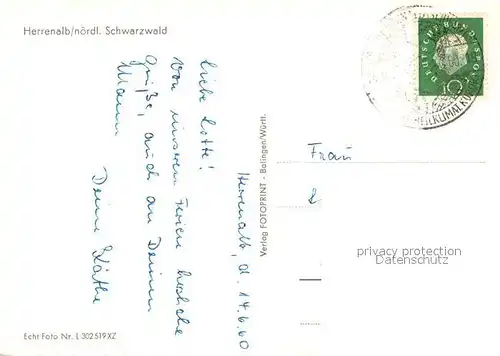 Herrenalb/nördl. Schwarzwald
DEUTSCHE BUNDESPOST
10
HEILKLIMAT. KU
Herrenalb, d. 14.6.60
Liebe Lotte!
Von unseren Ferien herzliche
Grüße, auch an Deinen
Mann
Deine Käthe
Verlag FOTOPRINT - Balingen/Württ.
Frau
privacy protection
Datenschutz
Echt Foto Nr. L 302519XZ